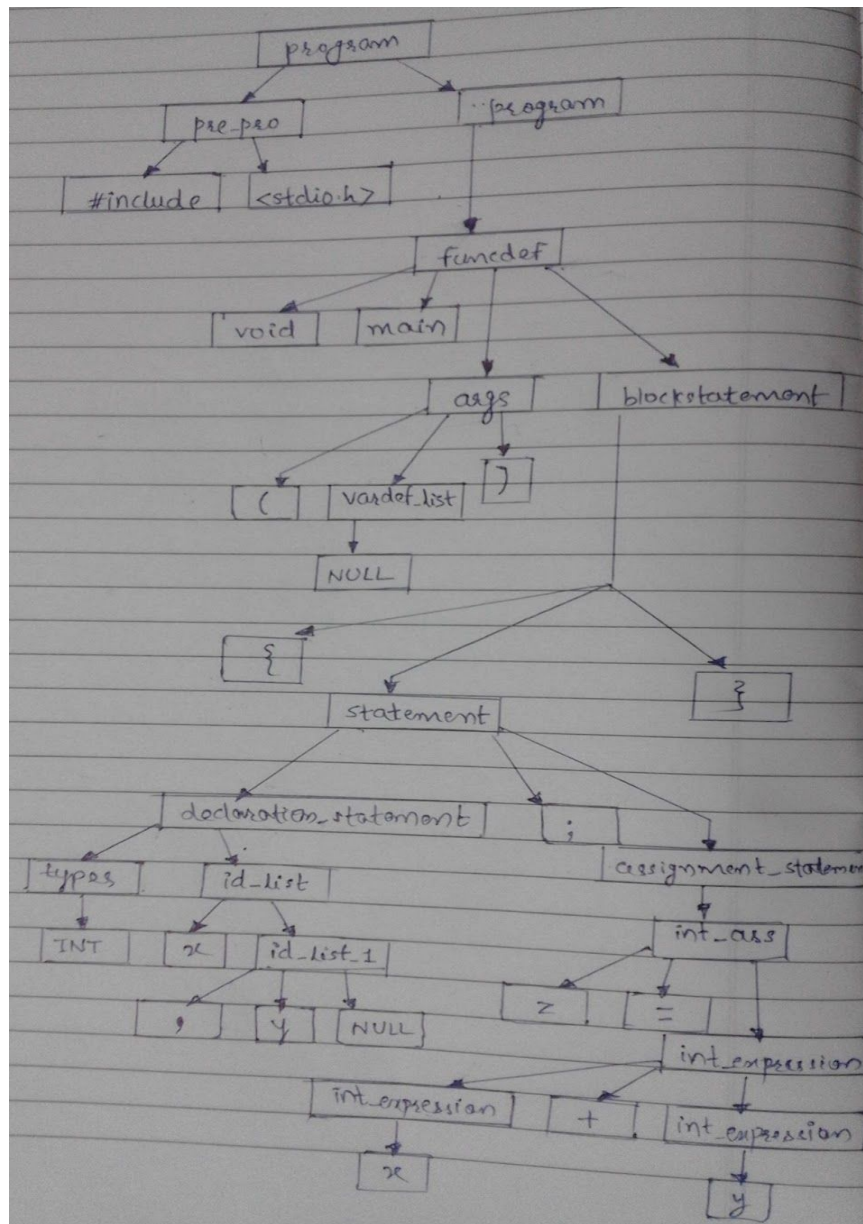 program
pre_pro program
#include <stdio.h>
funcdef
void main
args blockstatement
( vardef_list )
NULL
{ }
statement
declaration_statement ;
types id_list assignment_statemen
INT x id_list_1 int_ass
, y NULL z =
int_expression
int_expression + int_expression
x y